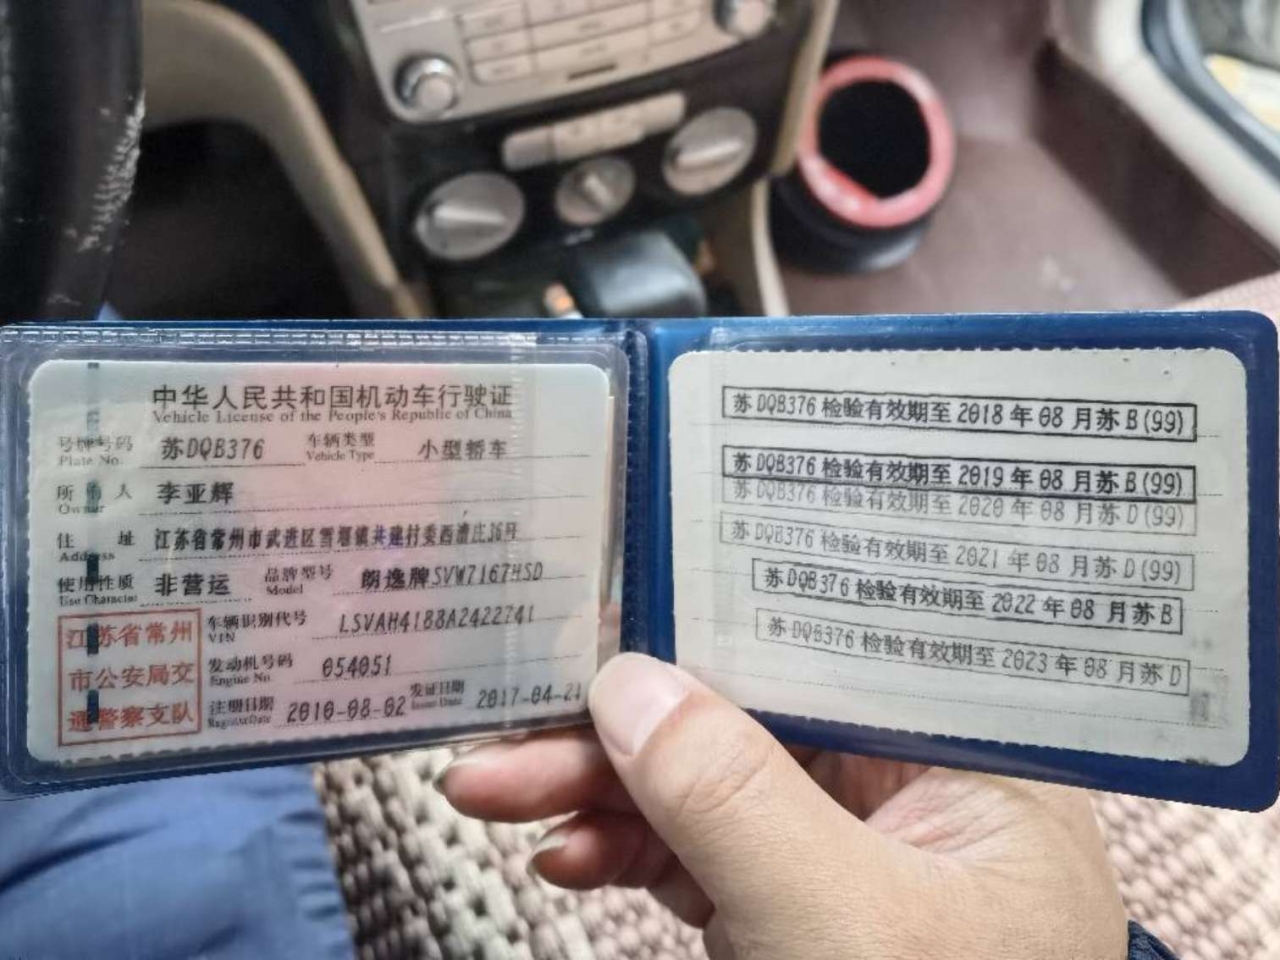 中华人民共和国机动车行驶证
Vehicle License of the People's Republic of China
号牌号码 苏DQB376 车辆类型 小型轿车
Plate No. Vehicle Type
所有人 李亚辉
Owner
住址 江苏省常州市武进区雪堰镇共建村委西漕庄36号
Address
使用性质 非营运 品牌型号 朗逸牌SVW7167HSD
Use Character Model
车辆识别代号 LSVAH4188A2422741
VIN
发动机号码 054051
Engine No.
注册日期 2010-08-02 发证日期 2017-04-21
Register Date Issue Date
江苏省常州
市公安局交
通警察支队
苏DQB376检验有效期至2018年08月苏B(99)
苏DQB376检验有效期至2019年08月苏B(99)
苏DQB376检验有效期至2020年08月苏D(99)
苏DQB376检验有效期至2021年08月苏D(99)
苏DQB376检验有效期至2022年08月苏B
苏DQB376检验有效期至2023年08月苏D